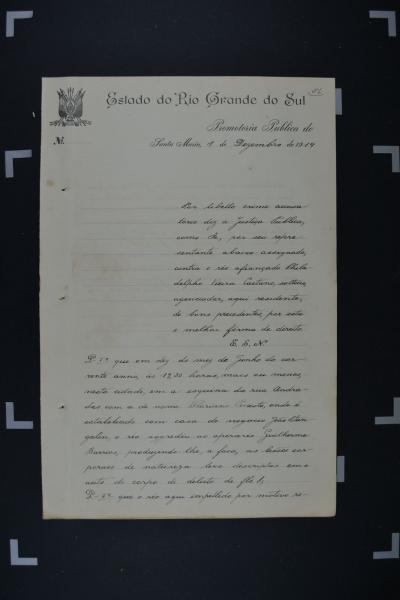 Estado do Rio Grande do Sul
Promotoria Publica de
Nº
Santa Maria, 1 de Dezembro de 1914
Por libello crime accusa-
torio diz a Justiça Publica,
como A., por seu repre-
sentante abaixo assignado,
contra o réo afiançado Phila-
delpho Vieira Caetano, solteiro,
agenciador, aqui residente,
de bons precedentes, por esta
e melhor forma de direito.
E. S. N.
P. 1º que em dez do mez de Junho do cor-
rente anno, ás 12,30 horas, mais ou menos,
nesta cidade, em a esquina da rua Andra-
das com a de nome Floriano Peixoto, onde é
estabelecido com casa de negocios João
o réo aggrediu ao operario Guilherme
Barrios, produzindo-lhe, a faca, as lesões cor-
poraes de natureza leve descriptas em o
auto de corpo de delicto de fls 6;
P. 2º que o réo agiu impellido por motivo re-